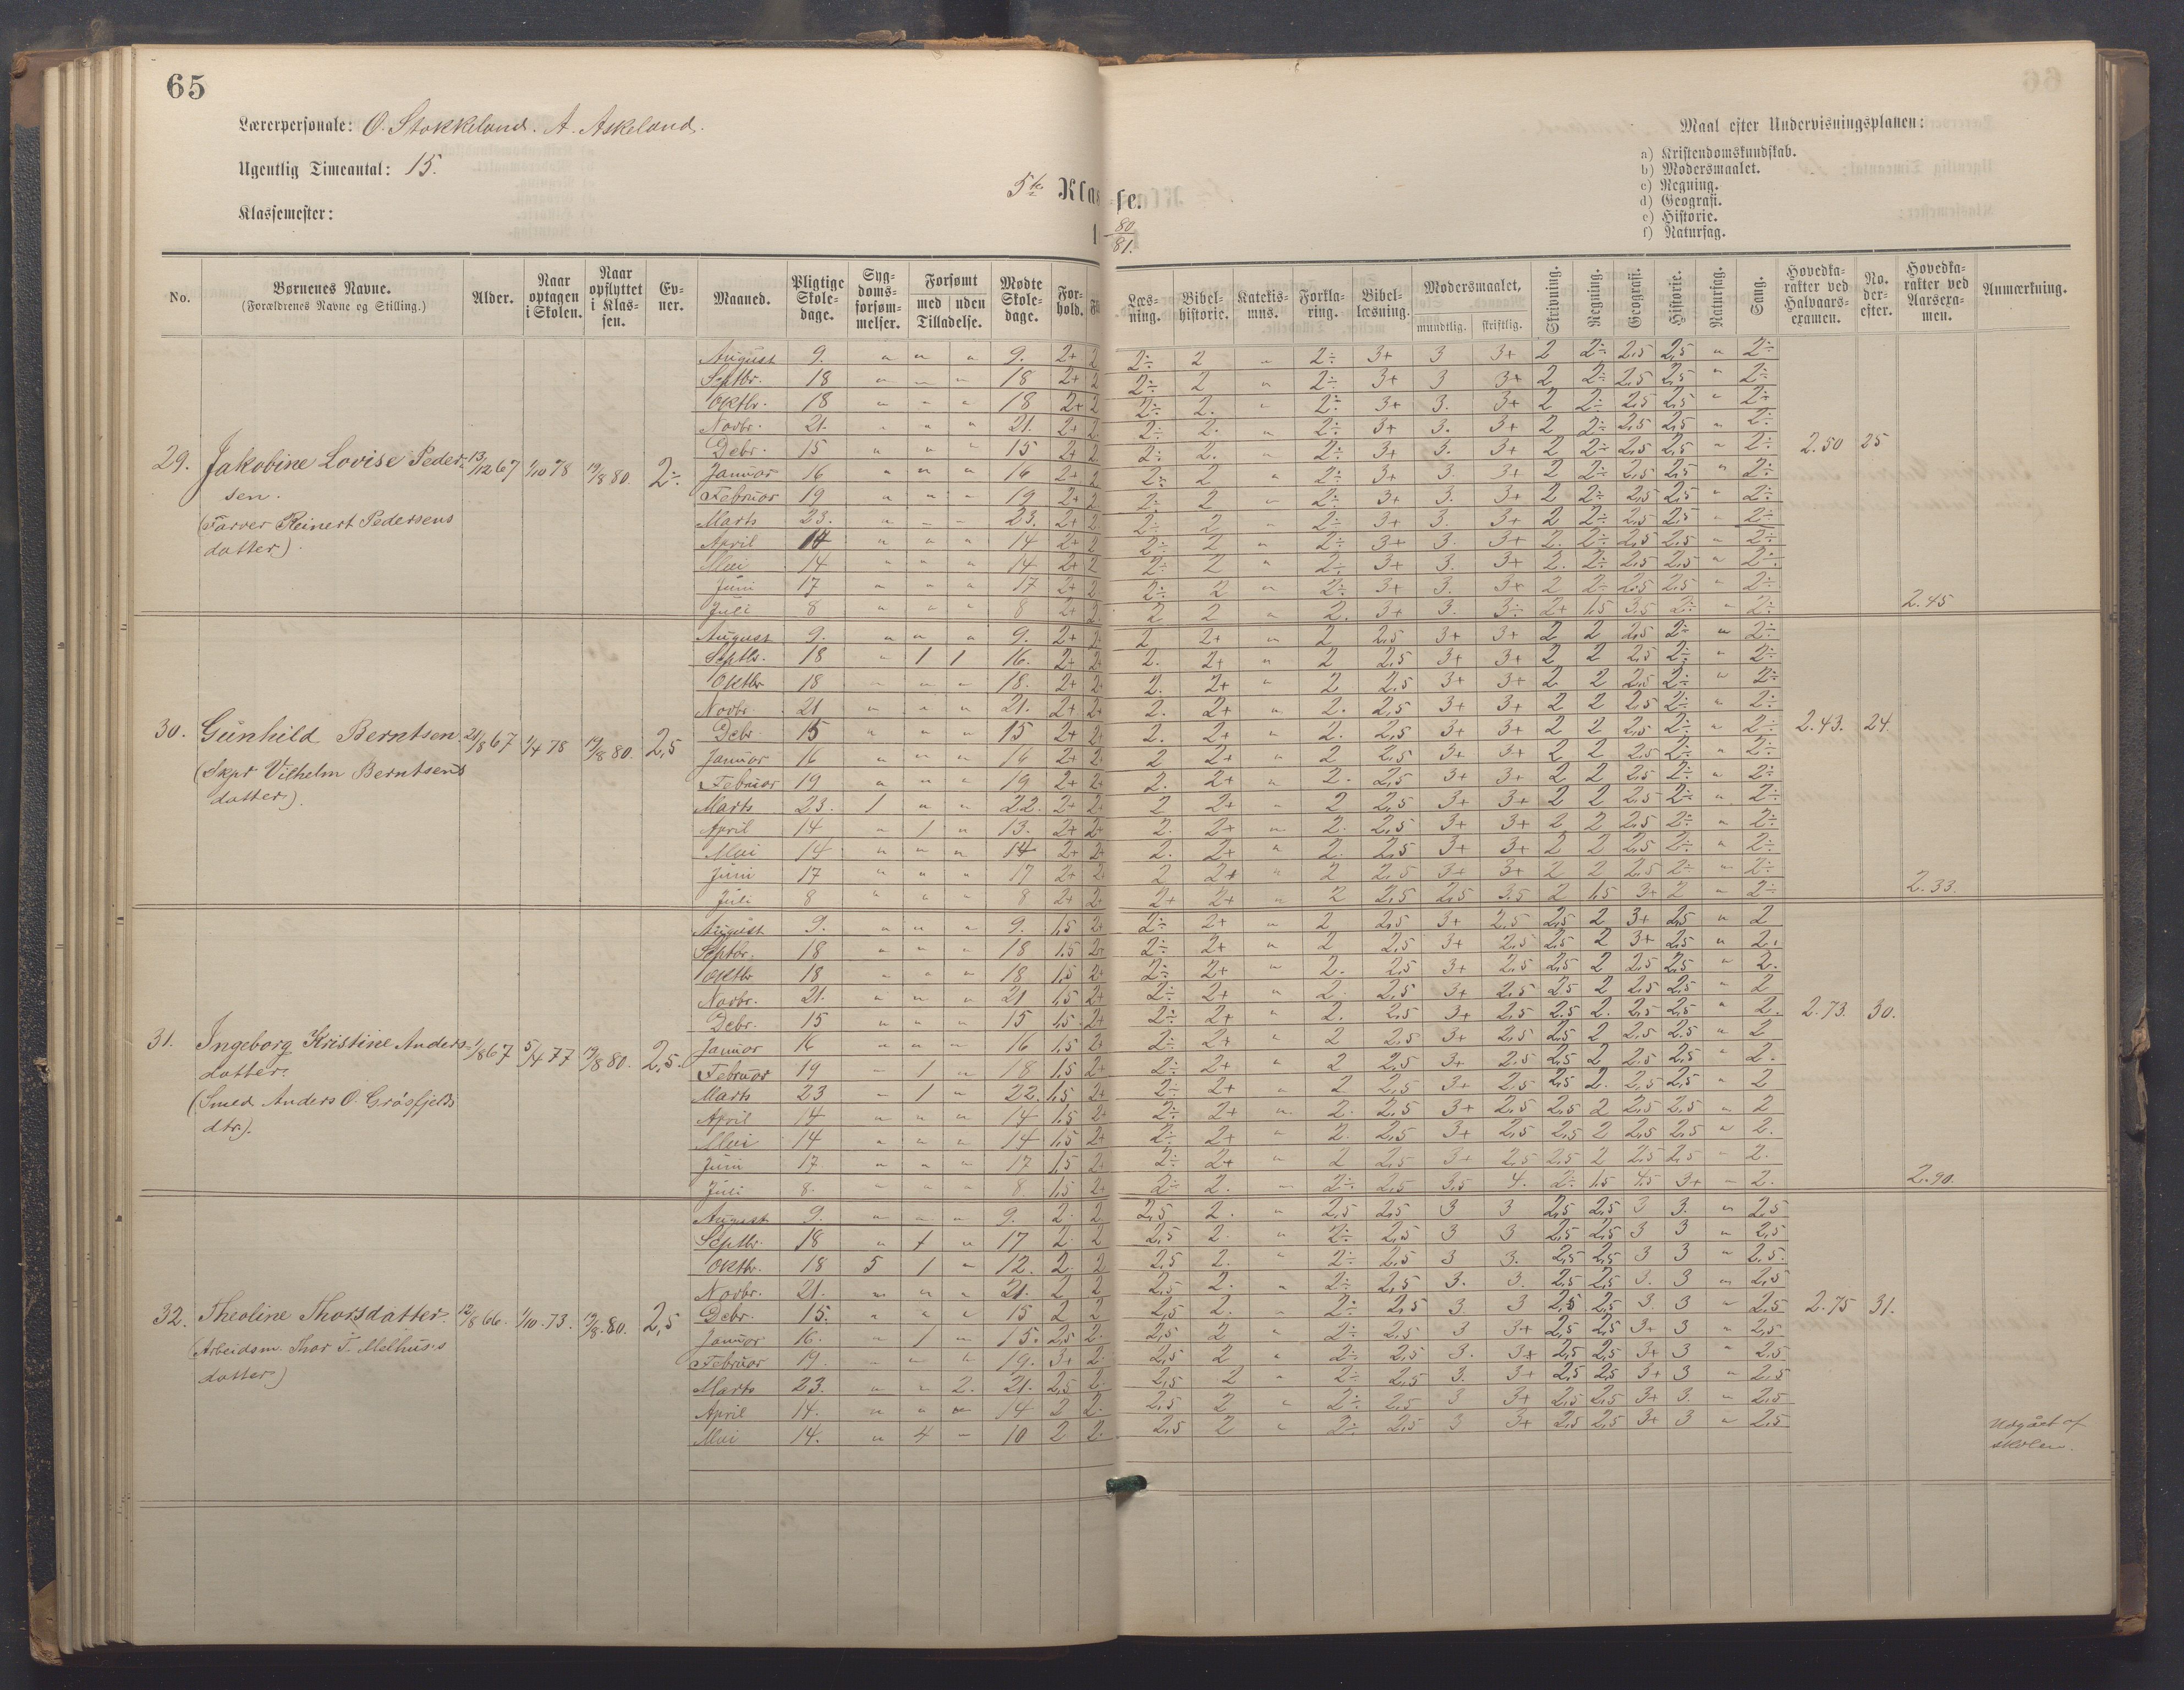 65
Lærerpersonale: O. Stokkeland. A. Askeland.
Ugentlig Timeantal: 15.
Klassemester:
5te Klasse.
80/81.
Maal efter Undervisningsplanen:
a) Kristendomskundskab.
b) Modersmaalet.
c) Regning.
d) Geografi.
e) Historie.
f) Naturfag.
No. | Børnenes Navne. (Forældrenes Navne og Stilling.) | Alder. | Naar optagen i Skolen. | Naar opflyttet i Klassen. | Evner. | Maaned. | Pligtige Skoledage. | Sygdomsforsømmelser. | Forsømt med Tilladelse. | uden Tilladelse. | Mødte Skoledage. | Forhold. | Læsning. | Bibelhistorie. | Katekismus. | Forklaring. | Bibellæsning. | Modersmaalet, mundtlig. | skriftlig. | Skrivning. | Regning. | Geografi. | Historie. | Naturfag. | Sang. | Hovedkarakter ved Halvaarsexamen. | No. derefter. | Hovedkarakter ved Aarsexamen. | Anmærkning.
29. Jakobine Lovise Pedersen. 13/12 67 1/10 78 19/8 80. 2÷. 2.50 25 2.45
(Farver Reinert Pedersens
datter).
August 9. " " " 9. 2+ 2 2÷ 2 " 2÷ 3+ 3 3+ 2 2÷ 2,5 2,5 " 2÷
Septbr. 18 " " " 18 2+ 2 2÷ 2 " 2÷ 3+ 3 3+ 2 2÷ 2,5 2,5 " 2÷
Oktbr. 18 " " " 18 2+ 2 2÷ 2. " 2÷ 3+ 3. 3+ 2 2÷ 2,5 2,5 " 2÷
Novbr. 21. " " " 21. 2+ 2 2÷ 2. " 2÷ 3+ 3. 3+ 2 2÷ 2,5 2,5 " 2÷
Debr. 15 " " " 15 2+ 2 2÷ 2. " 2÷ 3+ 3. 3+ 2 2÷ 2,5 2,5 " 2÷
Januar 16 " " " 16 2+ 2 2÷ 2 " 2÷ 3+ 3. 3+ 2 2÷ 2,5 2,5 " 2÷
Februar 19 " " " 19 2+ 2 2÷ 2 " 2÷ 3+ 3. 3+ 2 2÷ 2,5 2,5 " 2÷
Marts 23. " " " 23. 2+ 2 2÷ 2 " 2÷ 3+ 3. 3+ 2 2÷ 2,5 2,5 " 2÷
April 14 " " " 14 2+ 2 2÷ 2 " 2÷ 3+ 3. 3+ 2. 2÷ 2,5 2,5 " 2÷
Mai 14 " " " 14 2+ 2 2÷ 2 " 2÷ 3+ 3. 3+ 2. 2÷ 2,5 2,5 " 2÷
Juni 17 " " " 17 2+ 2 2÷ 2 " 2÷ 3+ 3. 3+ 2 2÷ 2,5 2,5 " 2÷
Juli 8 " " " 8 2+ 2 2 2 " 2. 3+ 3. 3÷ 2+ 1,5 3,5 2÷ " 2÷
30. Gunhild Berntsen. 21/8 67 1/4 78 19/8 80. 2,5 2.43. 24. 2.33.
(Skpr Vilhelm Berntsens
datter).
August 9. " " " 9. 2+ 2 2 2+ " 2 2,5 3+ 3+ 2 2 2,5 2÷ " 2÷
Septbr. 18 " 1 1 16. 2+ 2+ 2. 2+ " 2 2,5 3+ 3+ 2 2 2,5 2÷ " 2÷
Oktbr 18 " " " 18. 2+ 2+ 2. 2+ " 2 2,5 3+ 3+ 2 2 2,5 2÷ " 2÷
Novbr. 21 " " " 21. 2+ 2+ 2. 2+ " 2. 2,5 3+ 3+ 2 2 2,5 2÷ " 2÷
Debr 15 " " " 15 2+ 2+ 2. 2+ " 2. 2,5 3+ 3+ 2 2 2,5 2÷ " 2÷
Januar 16 " " " 16 2+ 2+ 2 2+ " 2 2,5 3+ 3+ 2 2 2,5 2÷ " 2÷
Februar 19 " " " 19 2+ 2+ 2. 2+ " 2. 2,5 3+ 3+ 2 2 2,5 2÷ " 2÷
Marts 23. 1 " " 22. 2+ 2+ 2 2+ " 2 2,5 3+ 3+ 2 2 2,5 2÷ " 2÷
April 14 " 1 " 13. 2+ 2+ 2. 2+ " 2. 2,5 3+ 3+ 2 2 2,5 2÷ " 2÷
Mai 14 " " " 14 2+ 2+ 2. 2+ " 2. 2,5 3+ 3+ 2 2 2,5 2÷ " 2÷
Juni 17 " " " 17 2+ 2 2 2+ " 2 2,5 3+ 3+ 2 2 2,5 2÷ " 2÷
Juli 8 " " " 8 2+ 2+ 2+ 2+ " 2 2,5 2,5 3,5 2 1,5 3+ 2 " 2÷
31. Ingeborg Kristine Andersdatter. 1/8 67 5/4 77 19/8 80. 2,5. 2.73. 30. 2.90.
(Smed Anders O. Gråsfjelds
dtr.).
August 9. " " " 9. 1,5 2+ 2÷ 2+ " 2 2,5 3+ 2,5 2,5 2 3+ 2,5 " 2
Septbr. 18 " " " 18 1,5 2+ 2÷ 2+ " 2 2,5 3+ 2,5 2,5 2 3+ 2,5 " 2.
Oktbr 18 " " " 18 1,5 2+ 2÷ 2+ " 2. 2,5 3+ 2,5 2,5 2 2,5 2,5 " 2.
Novbr. 21. " " " 21 1,5 2+ 2÷ 2+ " 2. 2,5 3+ 2,5 2,5 2 2,5 2,5 " 2
Debr. 15 " " " 15 1,5 2+ 2÷ 2+ " 2. 2,5 3+ 2,5 2,5 2. 2,5 2,5 " 2.
Januar 16 " " " 16 1,5 2+ 2÷ 2+ " 2 2,5 3+ 2,5 2,5 2 2,5 2,5 " 2
Februar 19 " 1 " 18 1,5 2+ 2÷ 2+ " 2 2,5 3+ 2,5 2,5 2 2,5 2,5 " 2.
Marts 23 " 1 " 22. 1,5 2+ 2÷ 2+ " 2 2,5 3+ 2,5 2,5 2. 2,5 2,5 " 2
April 14 " " " 14 1,5 2+ 2÷ 2+ " 2. 2,5 3+ 2,5 2,5 2 2,5 2,5 " 2
Mai 14 " " " 14 1,5 2+ 2÷ 2+ " 2. 2,5 3+ 2,5 2,5 2 2,5 2,5 " 2.
Juni 17 " " " 17 1,5 2+ 2÷ 2+ " 2 2,5 3+ 2,5 2,5 2 2,5 2,5 " 2.
Juli 8. " " " 8. 1,5 2+ 2÷ 2. " 2÷ 2,5 3,5 4. 2÷ 1,5 4,5 3+ " 2.
32. Theoline Thorsdatter. 12/8 66. 1/10 73. 19/8 80. 2,5 2.75 31.
(Arbeidsm. Thor T. Melhus's
datter)
August 9. " " " 9. 2. 2 2,5 2. " 2,5 2,5 3 3 2,5 2,5 3 3. " 2,5
Septbr. 18 " 1 " 17 2. 2 2,5 2. " 2÷ 2,5 3 3 2,5 2,5 3 3 " 2,5
Oktbr. 18 5 1 " 12. 2. 2 2,5 2. " 2÷ 2,5 3 3. 2,5 2,5 3 3 " 2,5.
Novbr. 21. " " " 21. 2 2 2,5 2. " 2÷ 2,5 3. 3. 2,5 2,5 3. 3 " 2,5
Debr. 15. " " " 15 2 2 2,5 2. " 2÷ 2,5 3. 3 2,5 2,5 3. 3 " 2,5
Januar 16. " 1 " 15. 2,5 2. 2,5 2 " 2÷ 2,5 3 3+ 2,5 2,5 3+ 3 " 2,5
Februar 19. " " " 19. 3+ 2. 2,5 2 " 2÷ 2,5 3. 3+ 2,5 2,5 3+ 3 " 2,5
Marts 23. " " 2. 21. 2,5 2. 2,5 2 " 2÷ 2,5 3. 3+ 2,5 2,5 3+ 3 " 2,5
April 14. " " " 14 2 2. 2,5 2 " 2÷ 2,5 3 3+ 2,5 2,5 3+ 3. " 2,5
Mai 14. " 4 " 10 2 2. 2,5 2 " 2÷ 2,5 3 3+ 2,5 2,5 3+ 3 " 2,5
Udgået af
skolen.